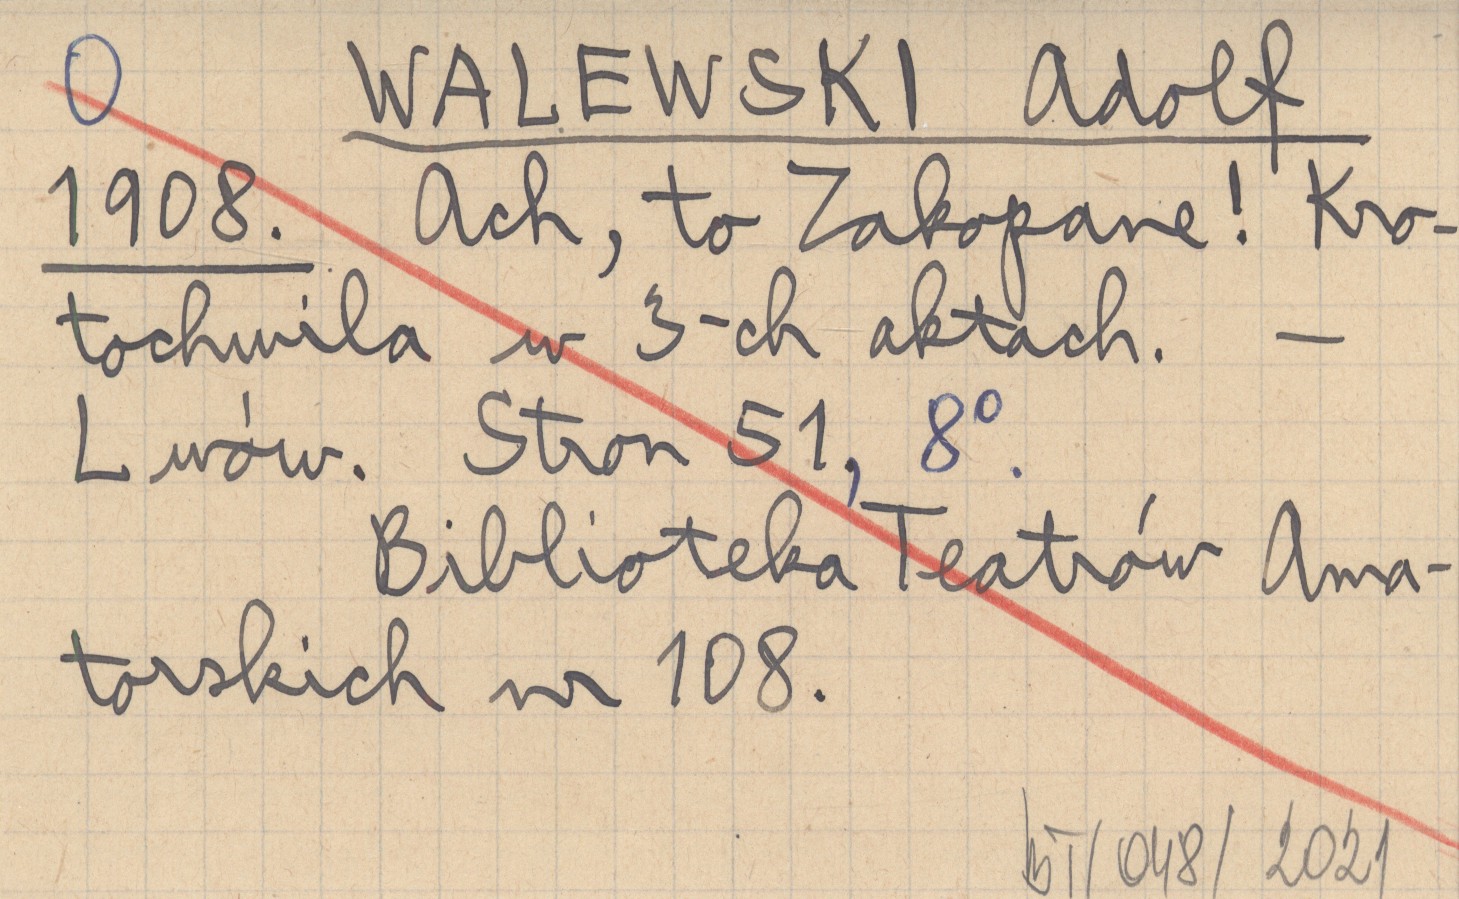 O WALEWSKI Adolf
1908. Ach, to Zakopane! Kro-
tochwila w 3-ch aktach. —
Lwów. Stron 51, 8°.
Biblioteka Teatrów Ama-
torskich nr 108.
BT/048/2021